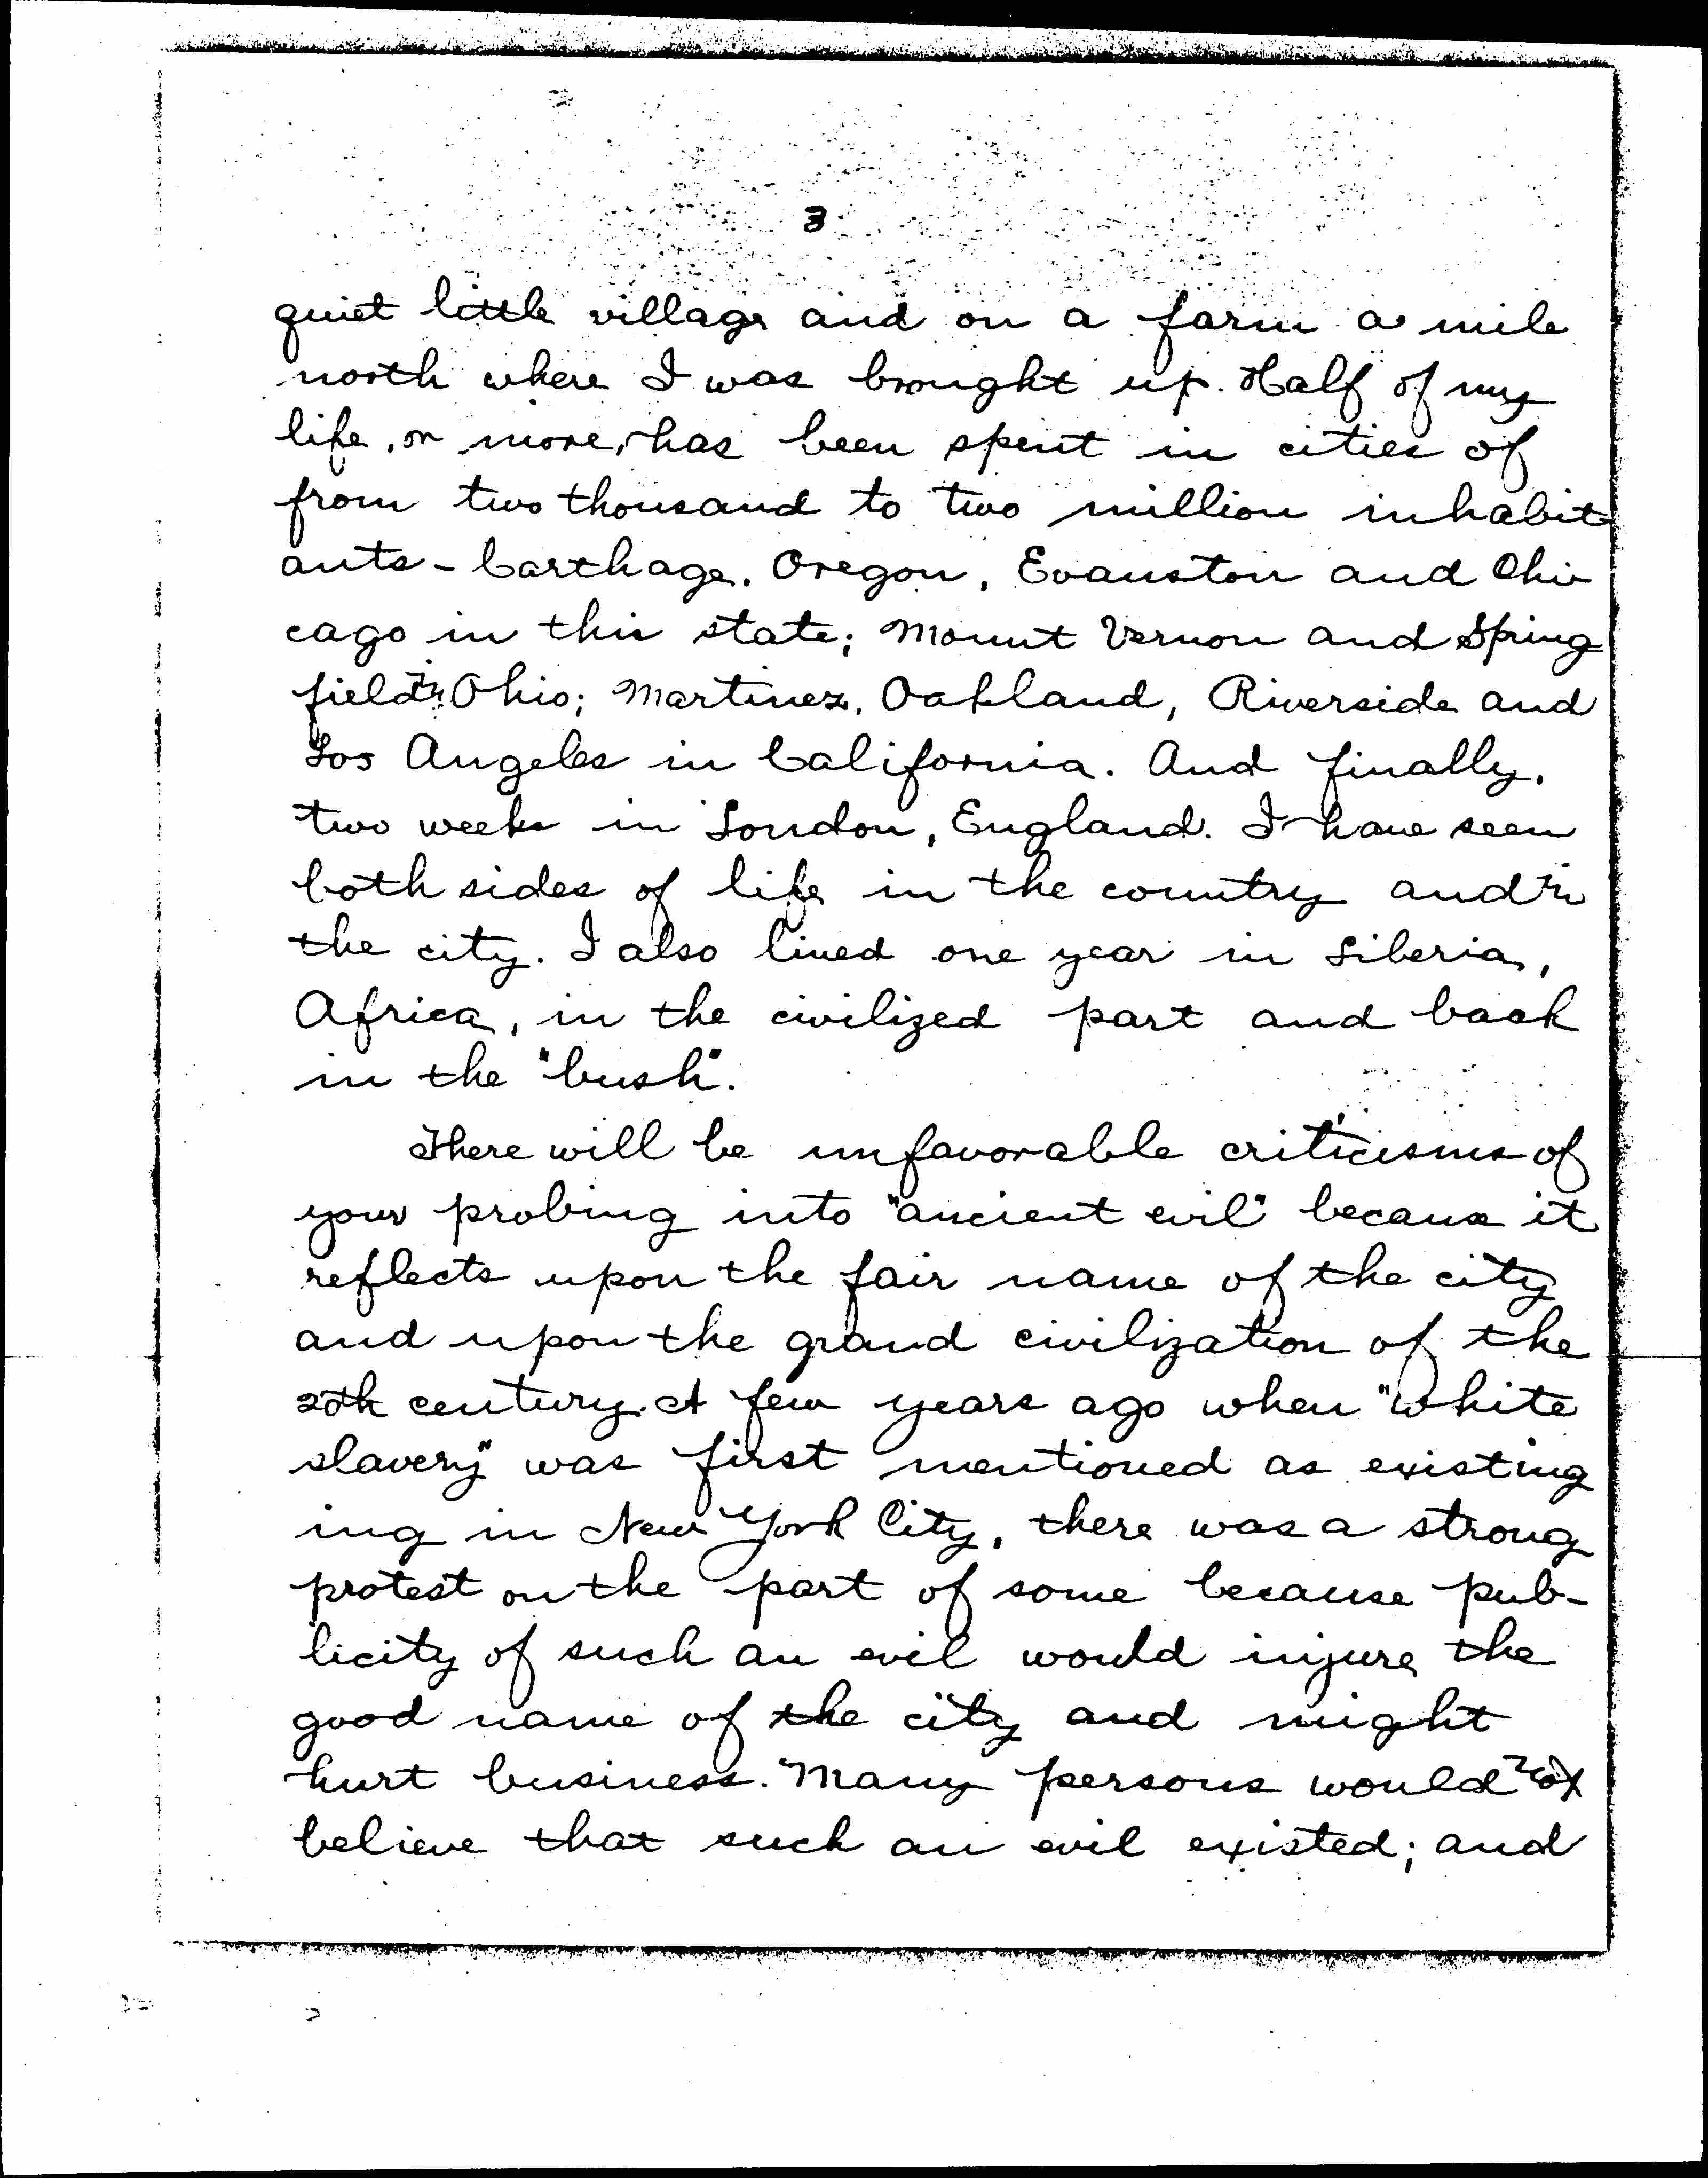 3
quiet little village and on a farm a mile
north where I was brought up. Half of my
life, or more, has been spent in cities of
from two thousand to two million inhabit
ants - Carthage, Oregon, Evanston and Chi
cago in this state; Mount Vernon and Spring
field in Ohio; Martinez, Oakland, Riverside and
Los Angeles in California. And finally,
two weeks in London, England. I have seen
both sides of life in the country and in
the city. I also lived one year in Liberia,
Africa, in the civilized part and back
in the "bush".
There will be unfavorable criticisms of
your probing into "ancient evil" because it
reflects upon the fair name of the city
and upon the grand civilization of the
20th century. A few years ago when "white
slavery" was first mentioned as existing
ing in New York City, there was a strong
protest on the part of some because pub-
licity of such an evil would injure the
good name of the city and might
hurt business. Many persons would not
believe that such an evil existed; and